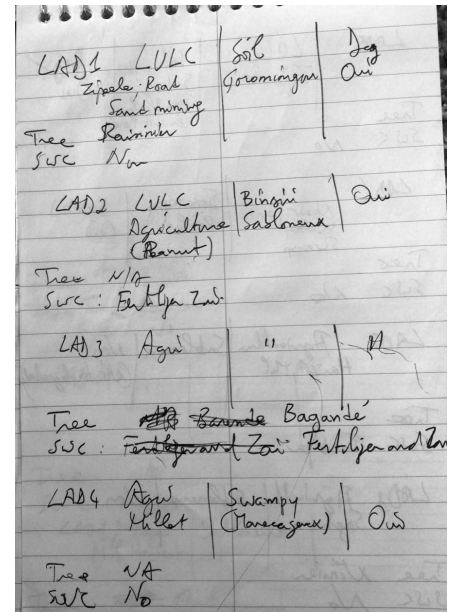 LAD1 LULC | Soil | Deg
Zipele; Road | Goromingou | Oui
Sand mining
Tree Raisinier
SWC Non
LAD2 LULC | Binsiri | Oui
Agriculture | Sabloneux
(Peanut)
Tree N/A
SWC : Fertilizer Zaï
LAD3 Agri | " |
Tree Bagandé
SWC : Fertilizer and Zaï Fertilizer and Zaï
LAD4 Agri | Swampy
Millet | (Marecageux) | Oui
Tree NA
SWC No